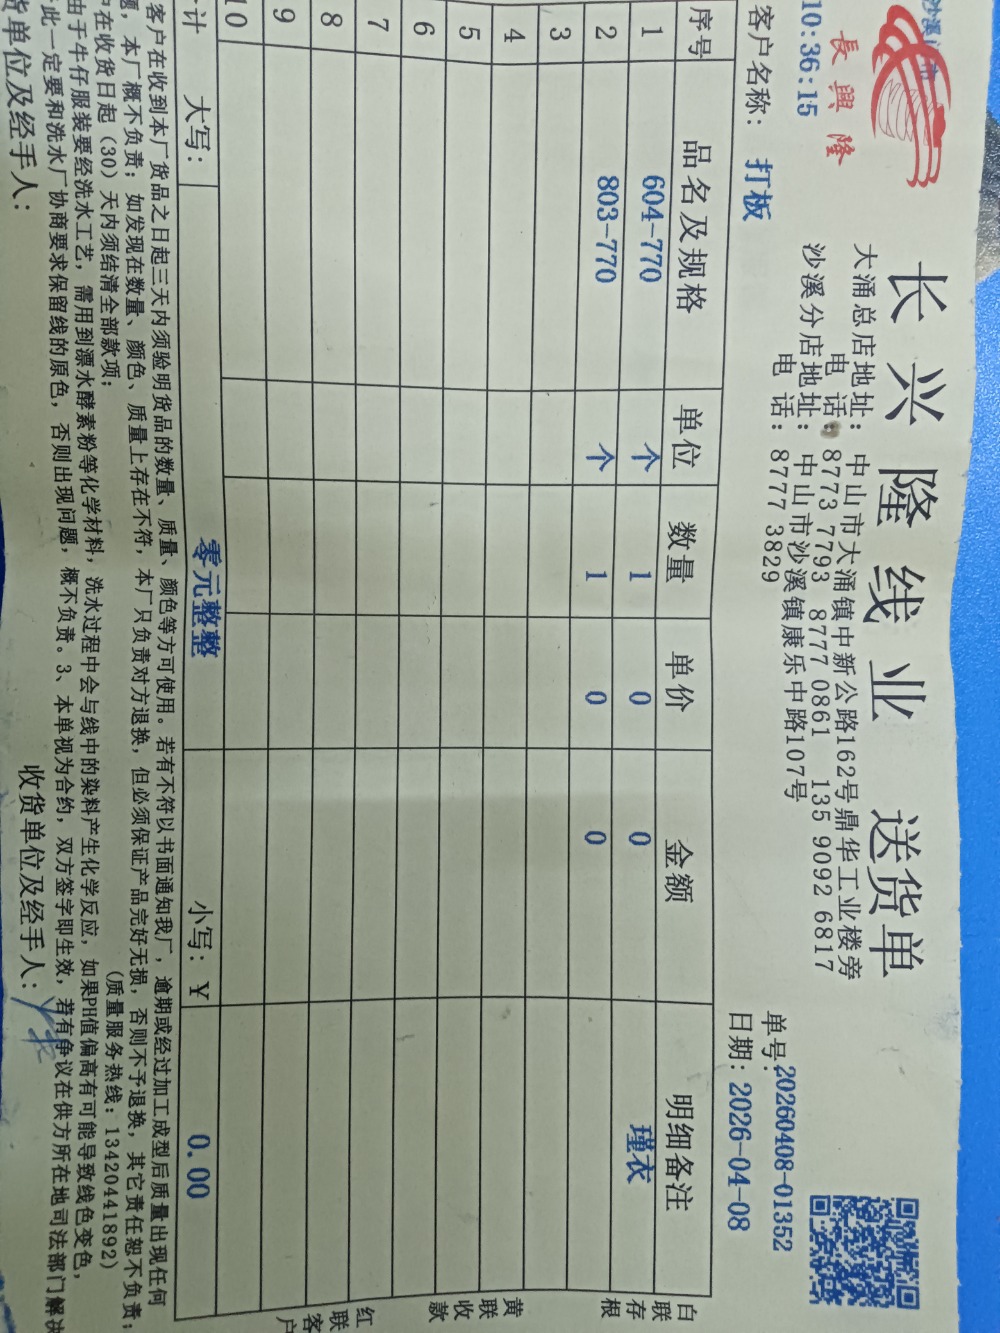 長興隆
长兴隆线业 送货单
大涌总店地址: 中山市大涌镇中新公路162号鼎华工业楼旁
电话: 8773 7793 8777 0861 135 9092 6817
沙溪分店地址: 中山市沙溪镇康乐中路107号
电话: 8777 3829
10:36:15
单号: 20260408-01352
客户名称: 打板
日期: 2026-04-08
序号 品名及规格 单位 数量 单价 金额 明细备注
1 604-770 个 1 0 0 瑾衣
2 803-770 个 1 0 0
3
4
5
6
7
8
9
10
计 大写: 零元整整 小写: ¥ 0.00
白联存根
黄联收款
红联客户
客户在收到本厂货品之日起三天内须验明货品的数量、质量、颜色等方可使用。若有不符以书面通知我厂,逾期或经过加工成型后质量出现任何
题,本厂概不负责;如发现在数量、颜色、质量上存在不符,本厂只负责对方退换,但必须保证产品完好无损,否则不予退换,其它责任恕不负责;
在收货日起(30)天内须结清全部款项; (质量服务热线: 13420441892)
由于牛仔服装要经洗水工艺,需用到漂水酵素粉等化学材料,洗水过程中会与线中的染料产生化学反应,如果PH值偏高有可能导致线色变色,
此一定要和洗水厂协商要求保留线的原色,否则出现问题,概不负责。3、本单视为合约,双方签字即生效,若有争议在供方所在地司法部门解决
货单位及经手人: 收货单位及经手人: